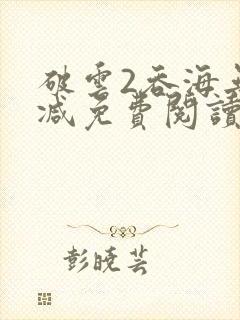 破雲2吞海無
減免費閱讀
彭曉芸